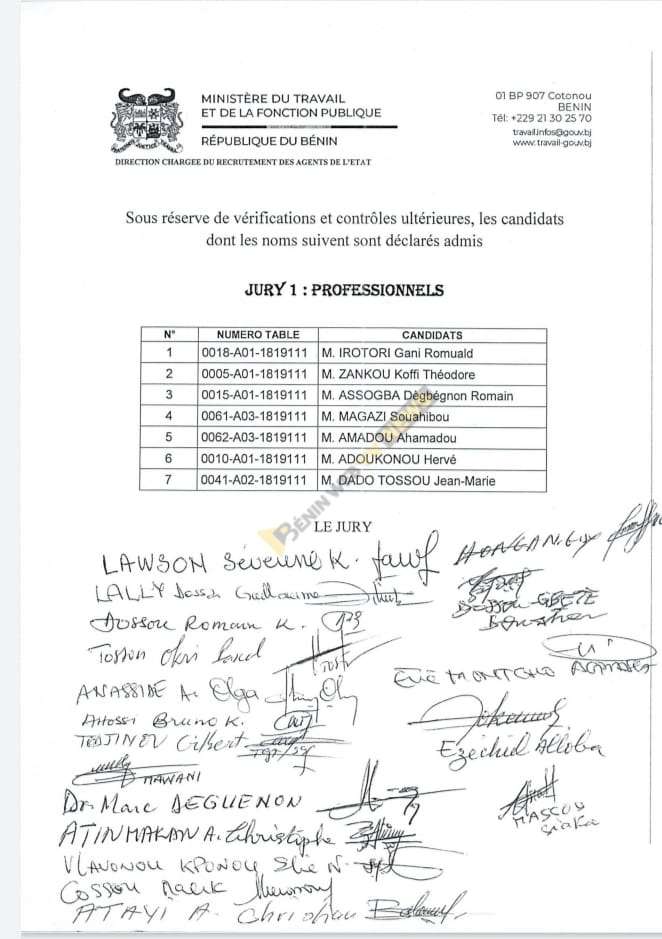 MINISTÈRE DU TRAVAIL
ET DE LA FONCTION PUBLIQUE
RÉPUBLIQUE DU BÉNIN
01 BP 907 Cotonou
BENIN
Tél: +229 21 30 25 70
travail.infos@gouv.bj
www.travail-gouv.bj
DIRECTION CHARGEE DU RECRUTEMENT DES AGENTS DE L'ETAT
Sous réserve de vérifications et contrôles ultérieures, les candidats
dont les noms suivent sont déclarés admis
JURY 1 : PROFESSIONNELS
N° NUMERO TABLE CANDIDATS
1 0018-A01-1819111 M. IROTORI Gani Romuald
2 0005-A01-1819111 M. ZANKOU Koffi Théodore
3 0015-A01-1819111 M. ASSOGBA Dègbégnon Romain
4 0061-A03-1819111 M. MAGAZI Souahibou
5 0062-A03-1819111 M. AMADOU Ahamadou
6 0010-A01-1819111 M. ADOUKONOU Hervé
7 0041-A02-1819111 M. DADO TOSSOU Jean-Marie
BÉNIN WEB
LE JURY
LAWSON Séverine K.
LALLY Dossou Guillaume
Dossou Romain K.
Tossou Okri
ANASSIDE A. Olga
Ahossi Bruno K.
Gilbert
MAWANI
Dr. Marc DEGUENON
ATINMAKAN A. Christophe
VLAVONOU KPONOU Elie N.
Cossou
ATAYI A. Christian
Eve MONTCHO
Ezéchiel Alloba
MASCOU
Siaka